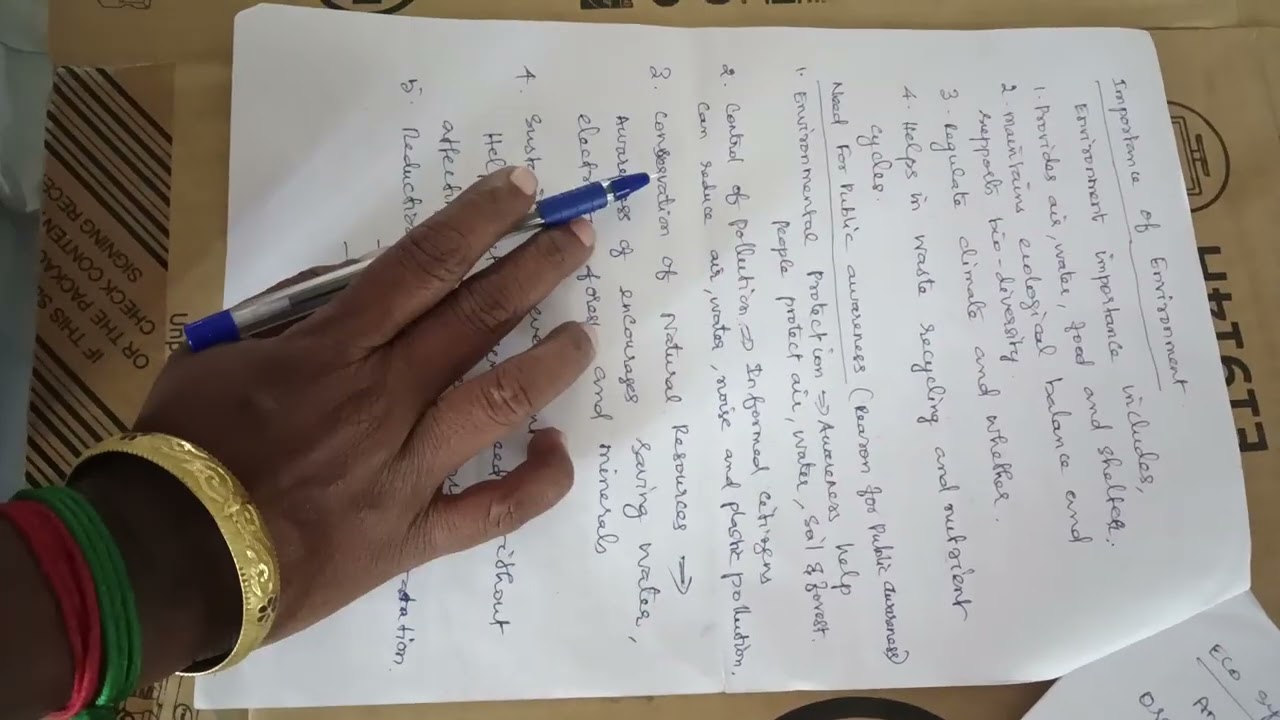 Importance of Environment
Environment importance includes,
1. Provides air, water, food and shelter.
2. Maintains ecological balance and
supports bio-diversity
3. Regulate climate and whether.
4. Helps in waste recycling and nutrient
cycles.
Need For Public awareness (Reason for Public awareness)
1. Environmental Protection ⇒ Awareness help
People protect air, water, soil & forest.
2. Control of pollution ⇒ Informed citizens
can reduce air, water, noise and plastic pollution.
3. Conservation of Natural Resources ⇒
Awareness of encourages saving water,
forest and minerals
4.
without
5. Reduction
ECO
IF THIS
OR THE PACKA
CHECK CONTEN
SIGNING RECE